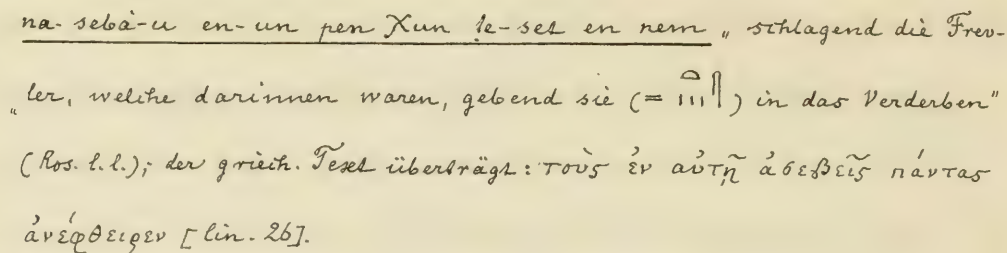 na-sebà-u en-un pen χun te-set en nem „schlagend die Frev-
„ler, welche darinnen waren, gebend sie (= 𓏏𓏥𓋴) in das Verderben"
(Ros. l.l.); der griech. Text überträgt: τοὺς ἐν αὐτῇ ἀσεβεῖς πάντας
ἀνέφθειρεν [lin. 26].